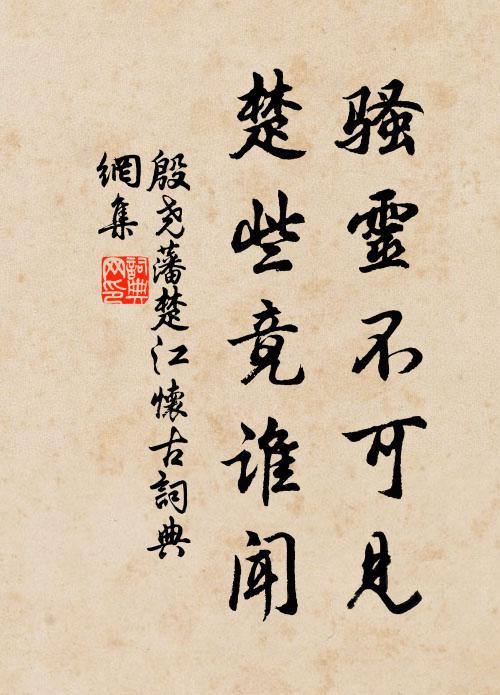 骚靈不可見
楚些竟谁聞
殷尧藩楚江懷古詞典
網集
詞典
网印